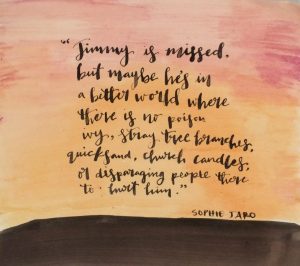 "Jimmy is missed,
but maybe he's in
a better world where
there is no poison
ivy, stray tree branches,
quicksand, church candles,
or disparaging people there
to hurt him."
SOPHIE JARO